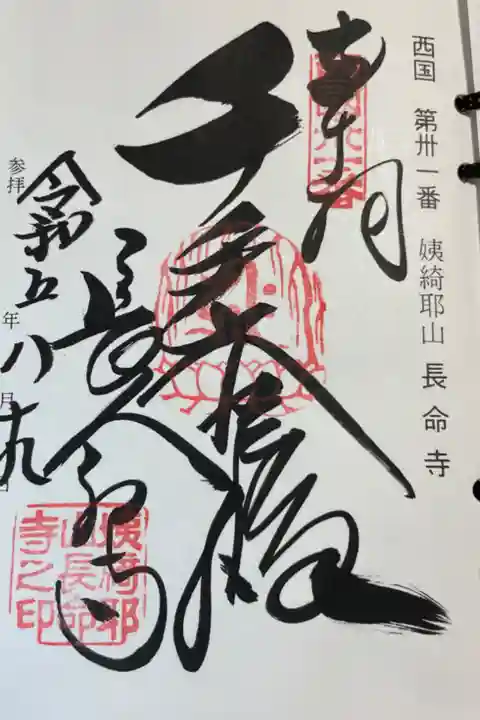 西国 第卅一番 姨綺耶山 長命寺
奉拝
千手大悲殿
長命寺
参拝 令和五年八月九
姨綺耶
山長命
寺之印